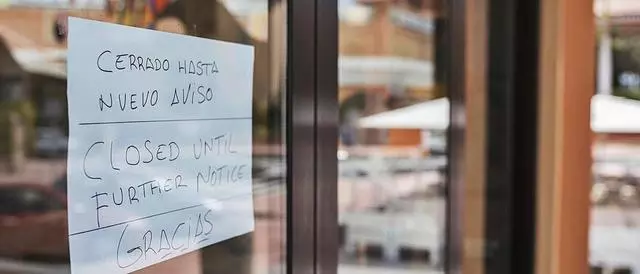 CERRADO HASTA
NUEVO AVISO
CLOSED UNTIL
FURTHER NOTICE
GRACIAS